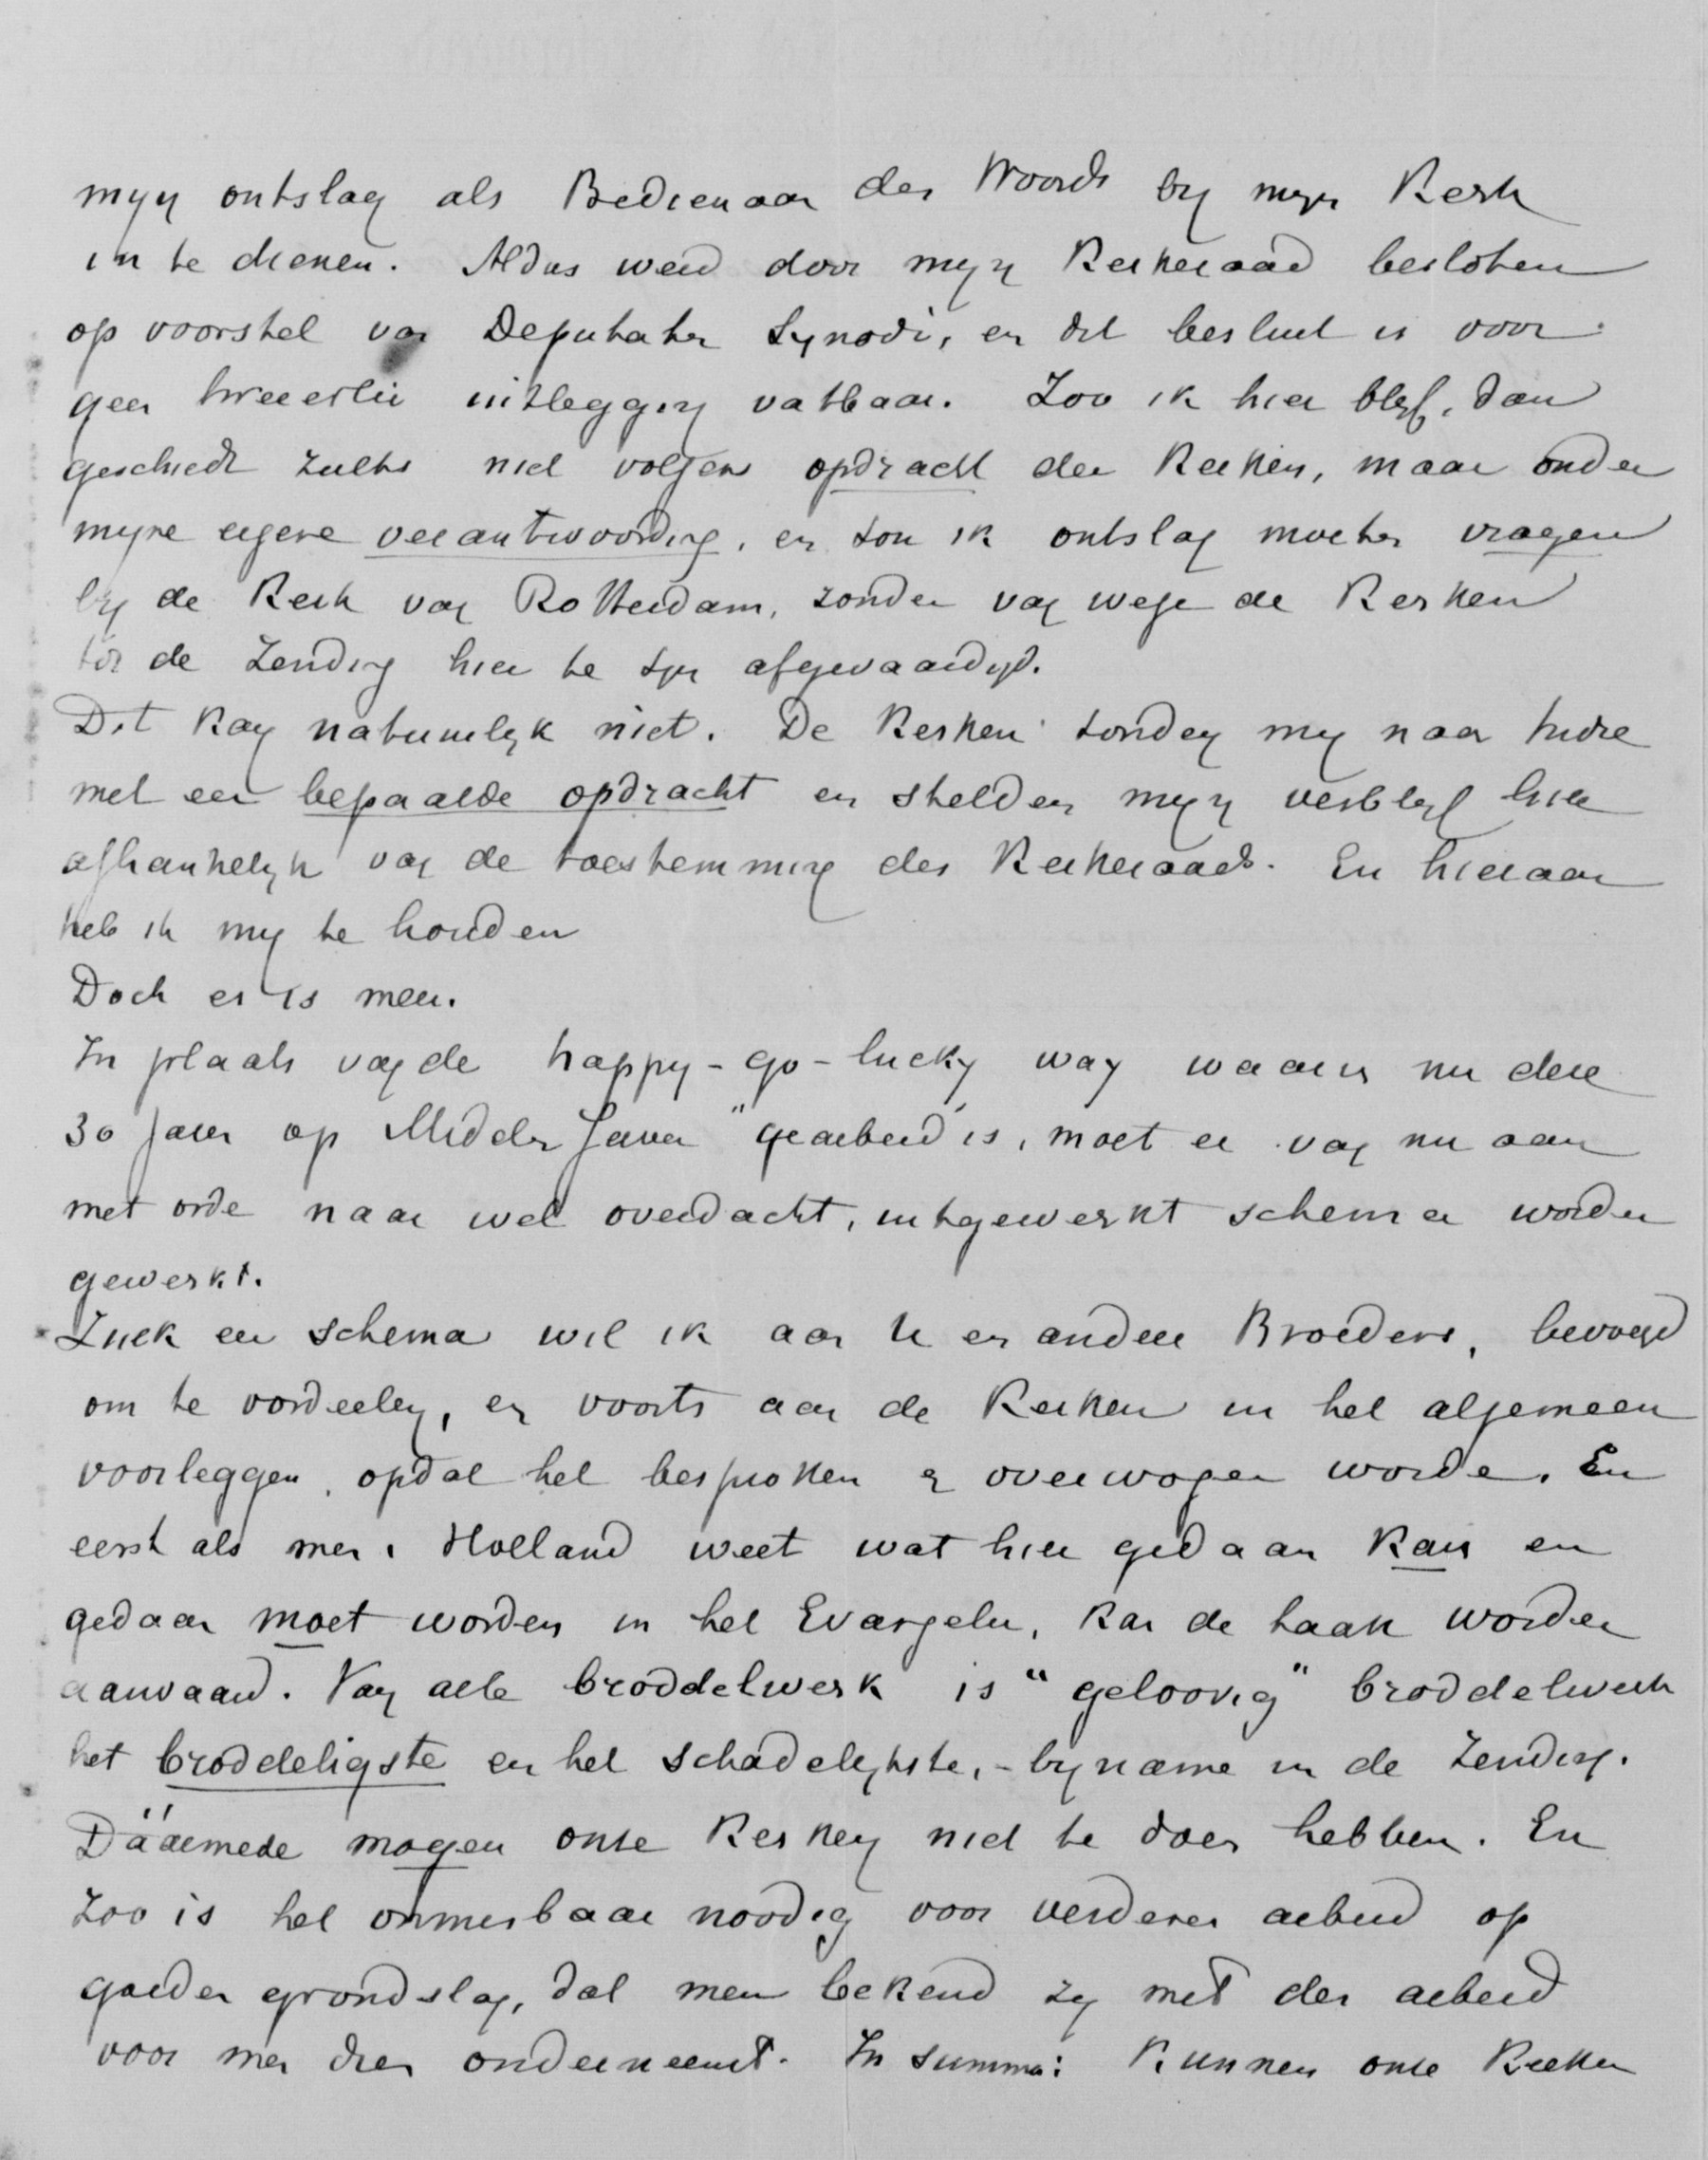 mijn ontslag als Bedienaar des Woords bij mijn Kerk
in te dienen. Aldus werd door mijn Kerkeraad besloten
op voorstel van Deputaten Synodi, en dit besluit is voor
geen tweeerlei uitlegging vatbaar. Zoo ik hier blijf, dan
geschiedt zulks niet volgens opdracht der Kerken, maar onder
mijne eigene verantwoording, en zou ik ontslag moeten vragen
bij de Kerk van Rotterdam, zonder van wege de Kerken
tot de Zending hier te zijn afgevaardigd.
Dit kan natuurlijk niet. De Kerken zonden mij naar Indie
met een bepaalde opdracht en stelden mijn verblijf hier
afhankelijk van de toestemming des Kerkeraads. En hieraan
heb ik mij te houden
Doch er is meer.
In plaats van de happy-go-lucky way waarin nu deze
30 jaren op Midden Java "gearbeid" is, moet er van nu aan
met orde naar wel overdacht, uitgewerkt schema worden
gewerkt.
Zulk een schema wil ik aan U en andere Broeders, bevoegd
om te oordeelen, en voorts aan de Kerken in het algemeen
voorleggen, opdat het besproken en overwogen worde. En
eerst als men i Holland weet wat hier gedaan kan en
gedaan moet worden in het Evangelie, kan de taak worden
aanvaard. Van alle broddelwerk is "geloovig" broddelwerk
het broddeligste en het schadelijkste, - bijname in de Zending.
Dáármede mogen onze Kerken niet te doen hebben. En
zoo is het onmisbaar noodig voor verderen arbeid op
goeden grondslag, dat men bekend zij met den arbeid
voor men dien onderneemt. In summa: Kunnen onze Kerken